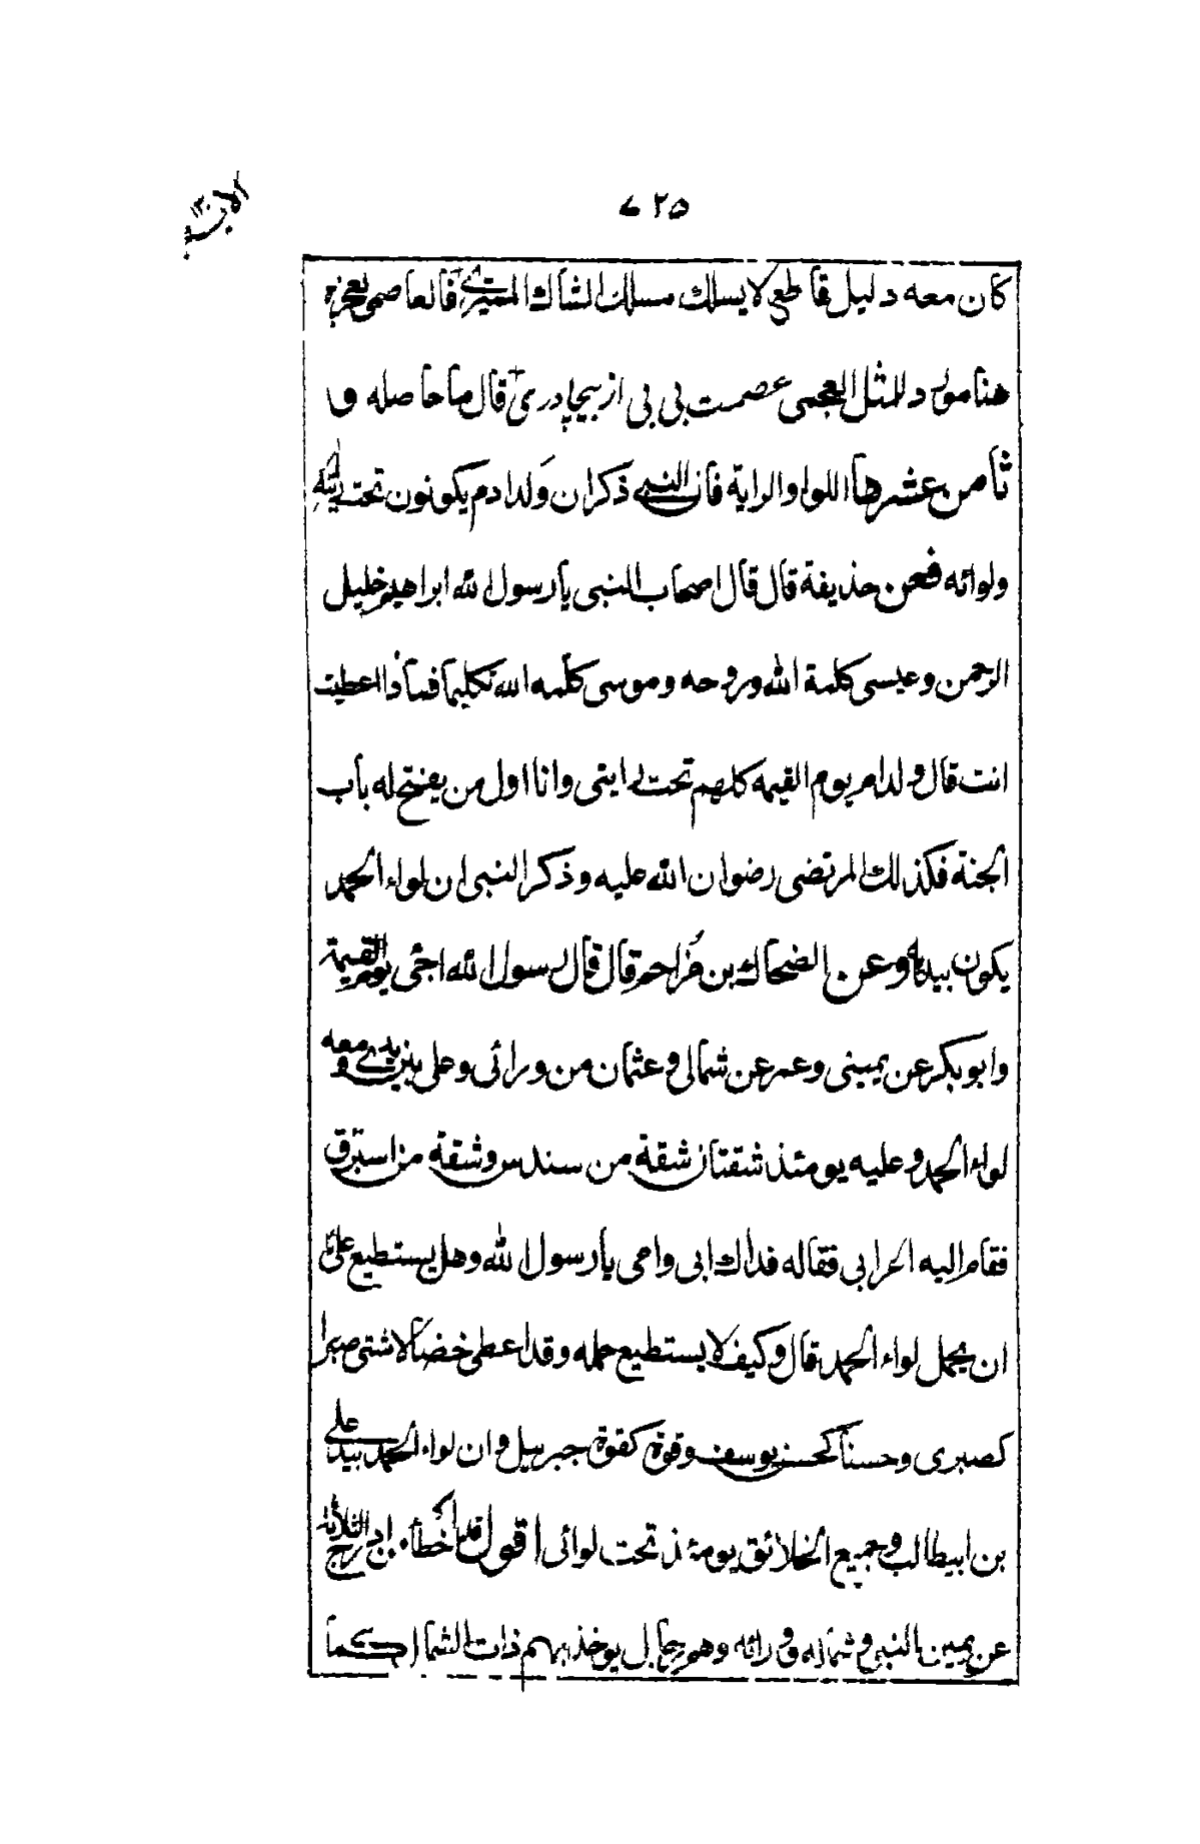 ٧٢٥
كان معه دليل قاطع لا يسلك مسلك الشاك المستريب قالعاصمى بعجزه
هنا مورد للمثل العجمى عصمت بى بى از بيچادرى قال ما حاصله و
ثامن عشرها اللواء والراية فان النبى ذكر ان ولد ادم يكونون تحت رايته
ولوائه فعن حذيفة قال قال اصحاب النبى يا رسول الله ابراهيم خليل
الرحمن وعيسى كلمة الله وروحه وموسى كلمه الله تكليما فماذا اعطيت
انت قال ولد ادم يوم القيمه كلهم تحت رايتى وانا اول من يفتح له باب
الجنة فكذلك المرتضى رضوان الله عليه وذكر النبى ان لواء الحمد
يكون بيده وعن الضحاك بن مُزاحم قال قال رسول الله اجئ يوم القيمة
وابو بكر عن يمينى وعمر عن شمالى وعثمان من ورائى وعلى بين يدى ومعه
لواء الحمد وعليه يومئذ شقتان شقة من سندس وشقة من استبرق
فقام اليه اعرابى فقاله فداك ابى وامى يا رسول الله وهل يستطيع على
ان يحمل لواء الحمد قال وكيف لا يستطيع حمله وقد اعطى خصالا شتى صبرا
كصبرى وحسنا كحسن يوسف وقوة كقوة جبرييل وان لواء الحمد بيد على
بن ابيطالب وجميع الخلائق يومئذ تحت لوائى اقول قد اخطأ ادرج الثلاثة
عن يمين النبى وشماله وورائه وهم رجال يوخذ بهم ذات الشمال كما